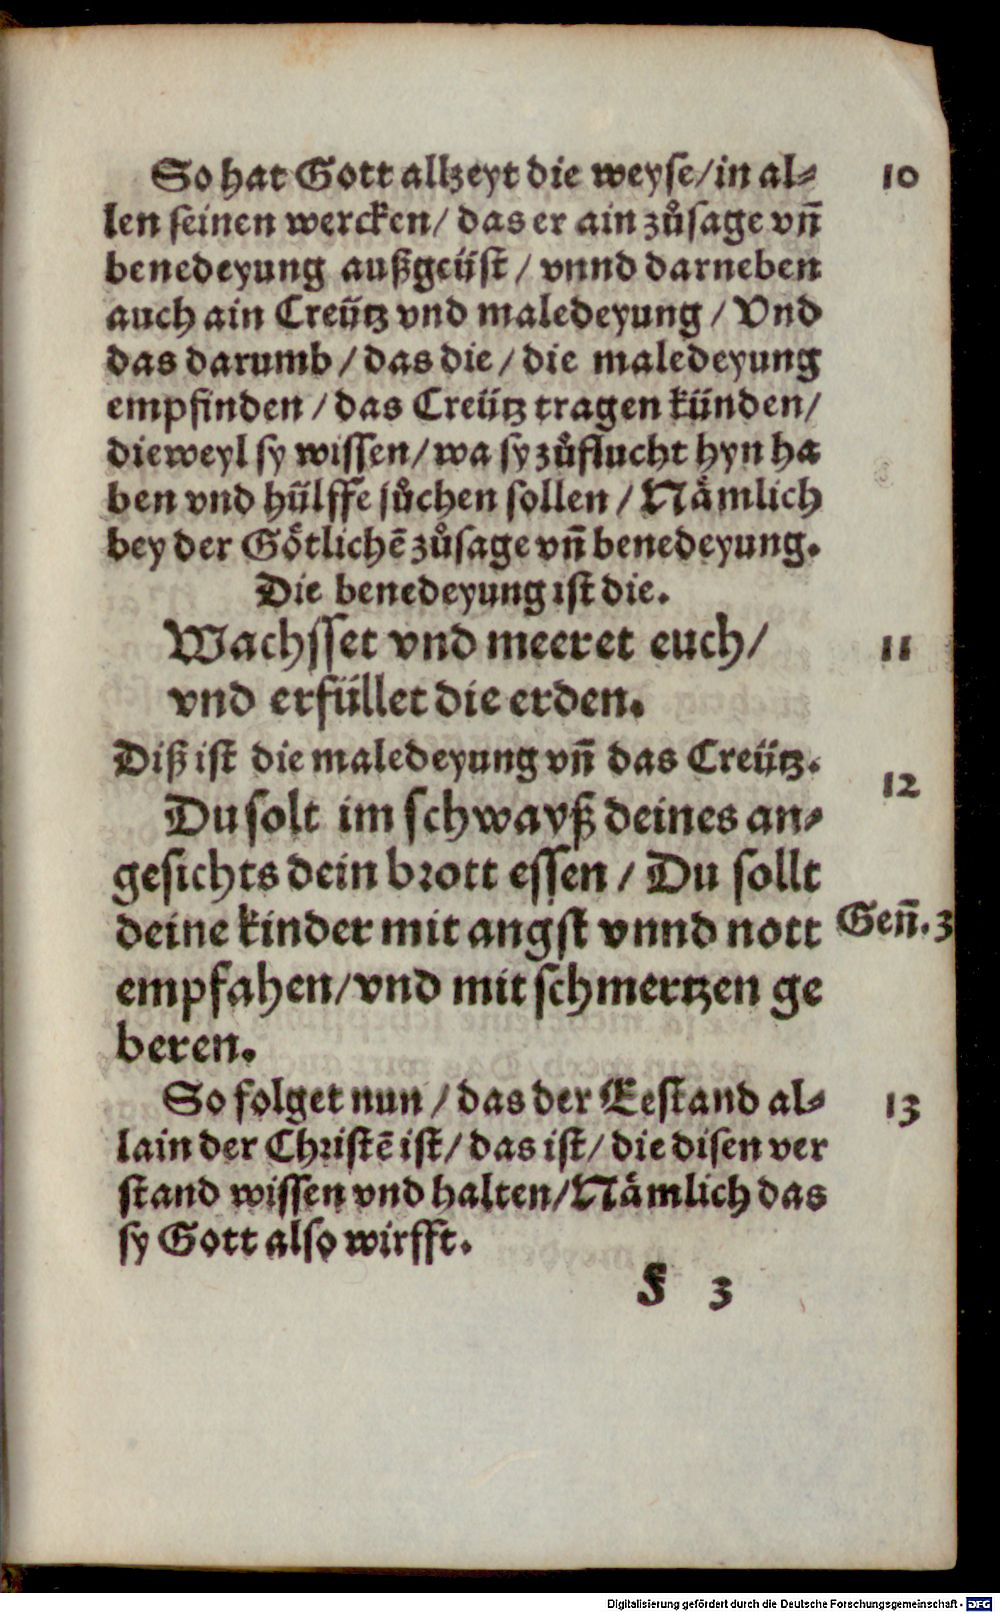 So hat Gott allzeyt die weyse/in al⸗ 10
len seinen wercken/ das er ain zůsage vñ
benedeyung außgeüst / vnnd darneben
auch ain Creütz vnd maledeyung / Vnd
das darumb / das die / die maledeyung
empfinden / das Creütz tragen künden/
dieweyl sy wissen/ wa sy zůflucht hyn ha
ben vnd hülffe sůchen sollen / Nämlich
bey der Götlichē zůsage vñ benedeyung.
Die benedeyung ist die.
Wachsset vnd meeret euch/ 11
vnd erfüllet die erden.
Diß ist die maledeyung vñ das Creütz. 12
Du solt im schwayß deines an⸗
gesichts dein brott essen / Du sollt
deine kinder mit angst vnnd nott Geñ. 3
empfahen/vnd mit schmertzen ge
beren.
So folget nun / das der Eestand al⸗ 13
lain der Christē ist/ das ist/ die disen ver
stand wissen vnd halten/ Nämlich das
sy Gott also wirfft.
F 3
Digitalisierung gefördert durch die Deutsche Forschungsgemeinschaft - DFG